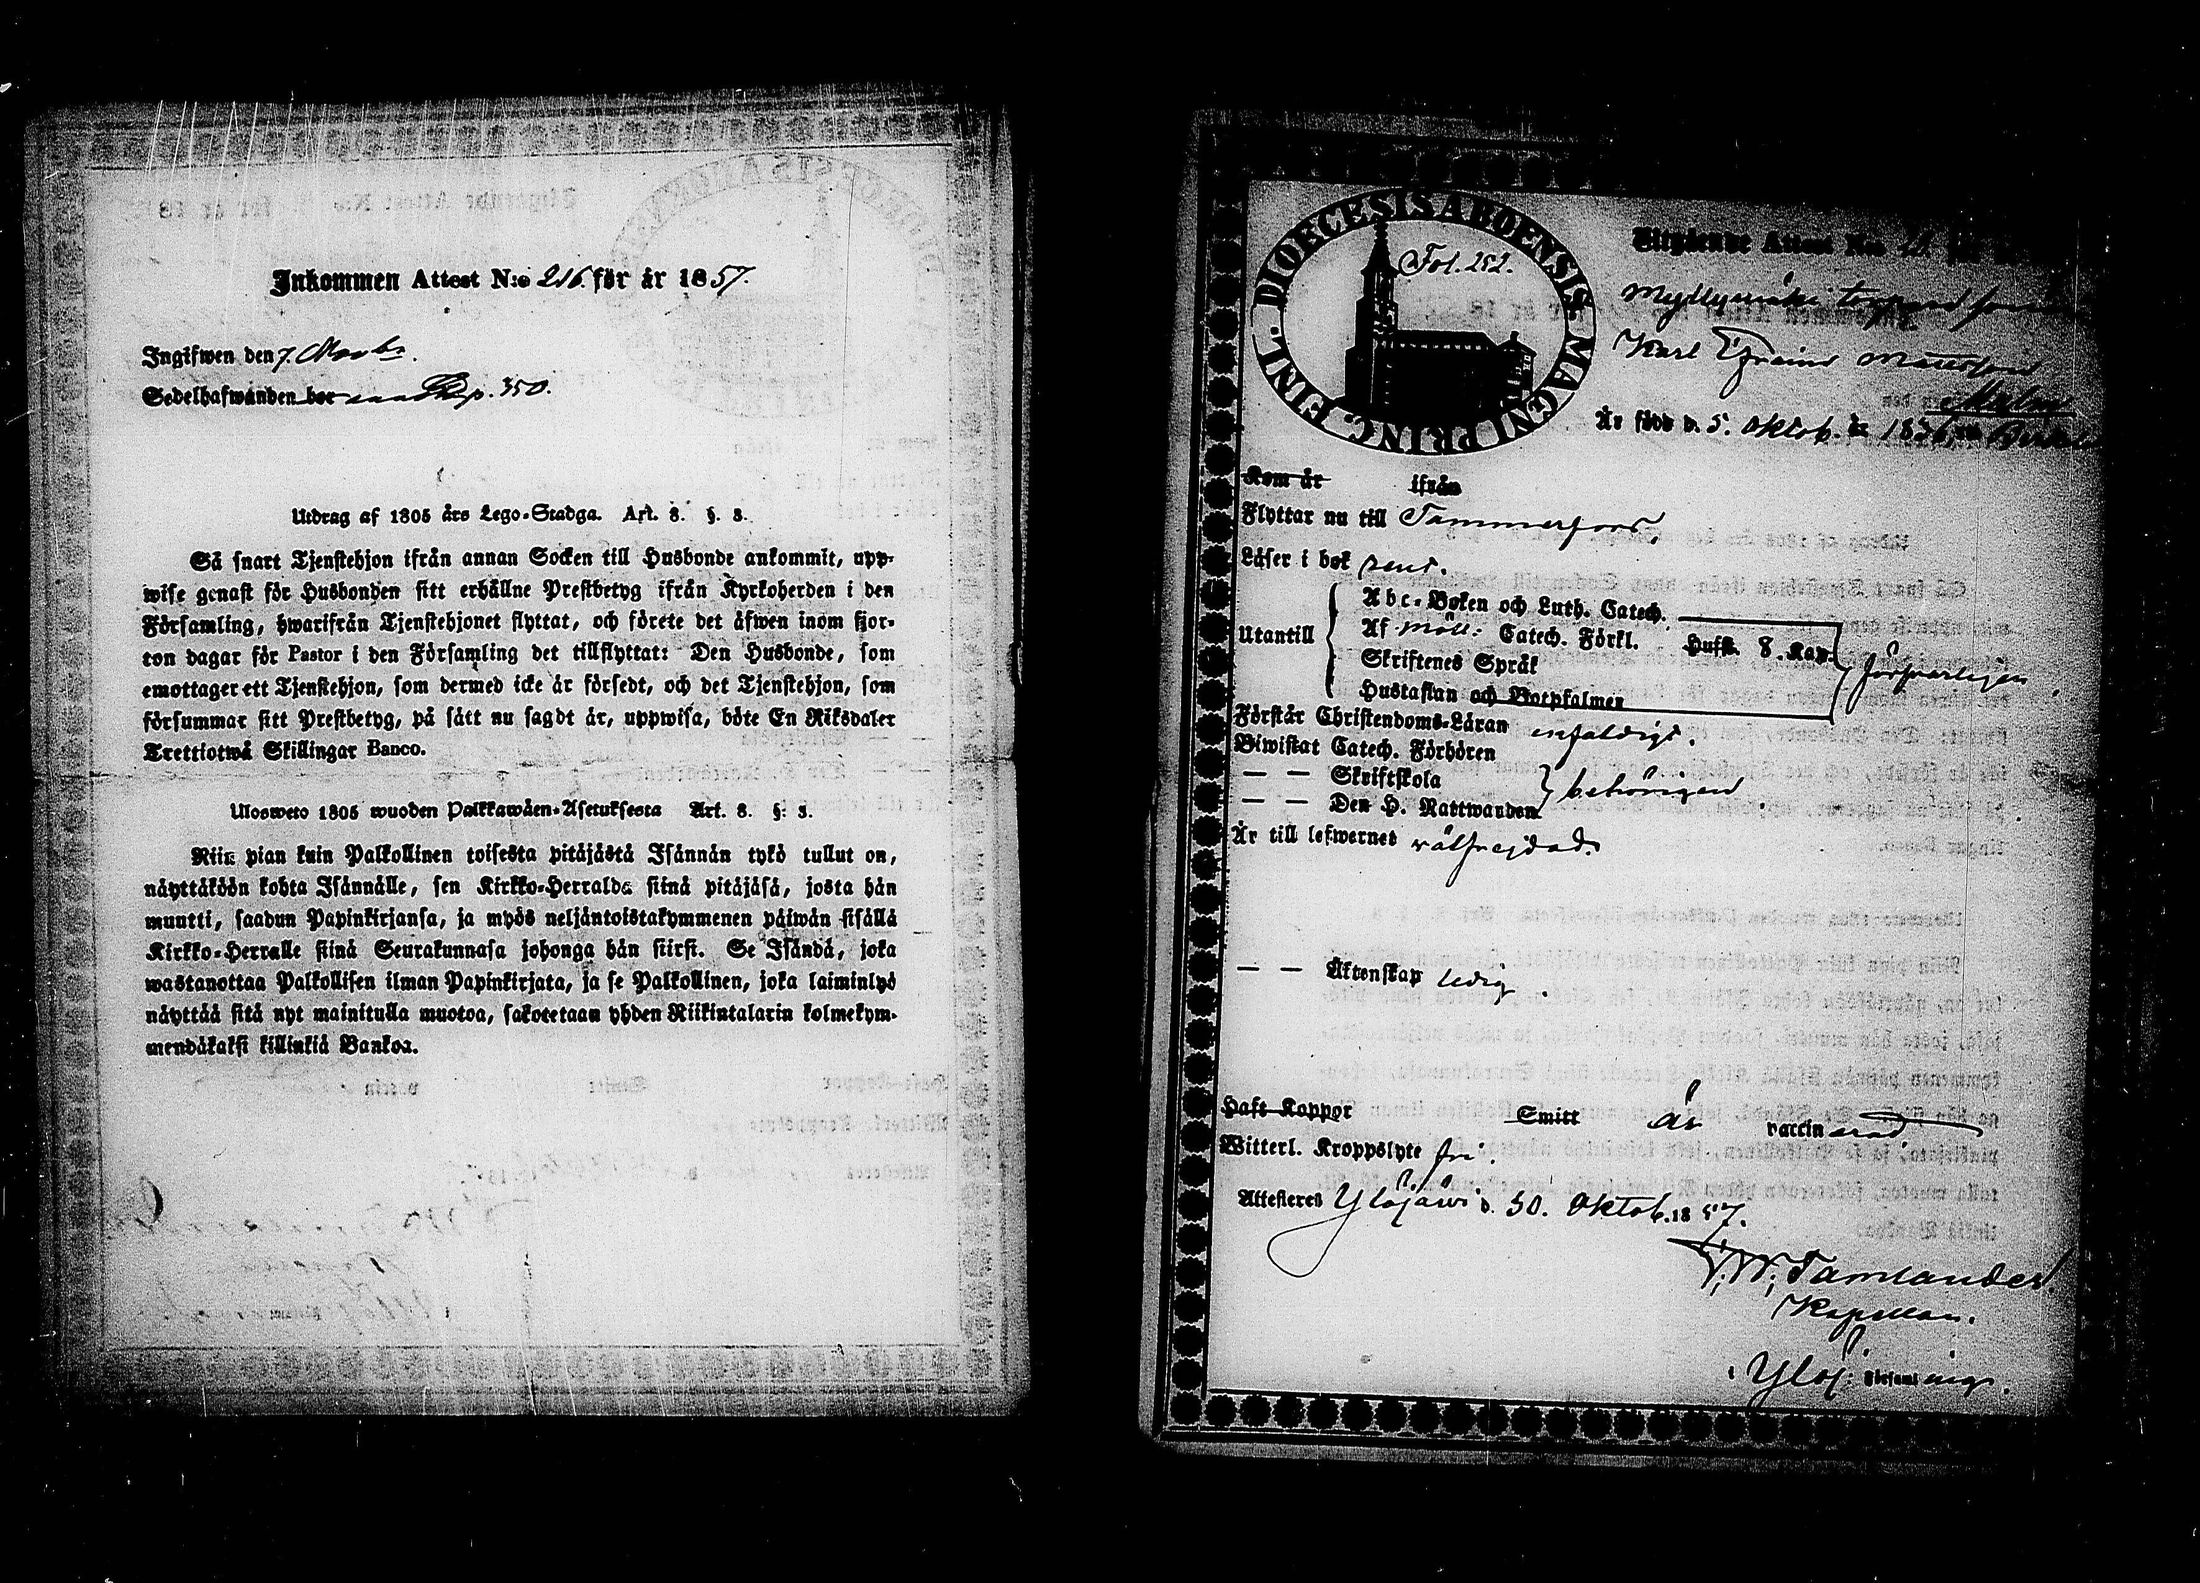 Inkommen Attest N:o 216 för år 1857.
Ingifwen den 7. Novbr.
Sedelhafwanden bor p. 350.
Utdrag af 1805 års Lego-Stadga. Art. 8. §. 3.
Så snart Tjenstehjon ifrån annan Socken till Husbonde ankommit, upp-
wise genast för Husbonden sitt erhållne Prestbetyg ifrån Kyrkoherden i den
Församling, hwarifrån Tjenstehjonet flyttat, och förete det äfwen inom fjor-
ton dagar för Pastor i den Församling det tillflyttat: Den Husbonde, som
emottager ett Tjenstehjon, som dermed icke är försedt, och det Tjenstehjon, som
försummar sitt Prestbetyg, på sätt nu sagdt är, uppwisa, böte En Riksdaler
Trettiotwå Skillingar Banco.
Ulosweto 1805 wuoden Palkkawäen-Asetuksesta Art. 8. §: 3.
Niin pian kuin Palkollinen toisesta pitäjästä Isännän tykö tullut on,
näyttäköön kohta Isännälle, sen Kirkko-Herralda siinä pitäjäsä, josta hän
muutti, saadun Papinkirjansa, ja myös neljäntoistakymmenen päiwän sisällä
Kirkko-Herralle siinä Seurakunnasa johonga hän siirsi. Se Isändä, joka
wastanottaa Palkollisen ilman Papinkirjata, ja se Palkollinen, joka laiminlyö
näyttää sitä nyt mainitulla muotoa, sakotetaan yhden Riikintalarin kolmekym-
mendäkaksi killinkiä Bankoa.
DIOECESIS ABOENSIS. MAGNI PRINC. FINL.
Fol. 252.
Utgående Attest N:o
Myllymäki torpare
Karl Efraim Mattsson
Är född d. 5. Oktob. år 1836,
Kom år ifrån
Flyttar nu till Tammerfors.
Läser i bok rent.
Utantill
Abc-Boken och Luth. Catech.
Af Möll: Catech. Förkl. Hufst. 8. Kap.
Skriftenes Språk
Hustaflan och Botpsalmer
försvarligen
Förstår Christendoms-Läran enfaldigt.
Biwistat Catech. Förhören
— — Skriftskola
— — Den H. Nattwarden
behörigen
Är till lefwernet välfrejdad.
— — Äktenskap ledig.
Haft Koppor Smitt är vaccinerad
Witterl. Kroppslyte fri.
Attesteres Ylöjärvi d. 30. Oktob. 1857.
Kapellan.
i Ylöj. Församlings.